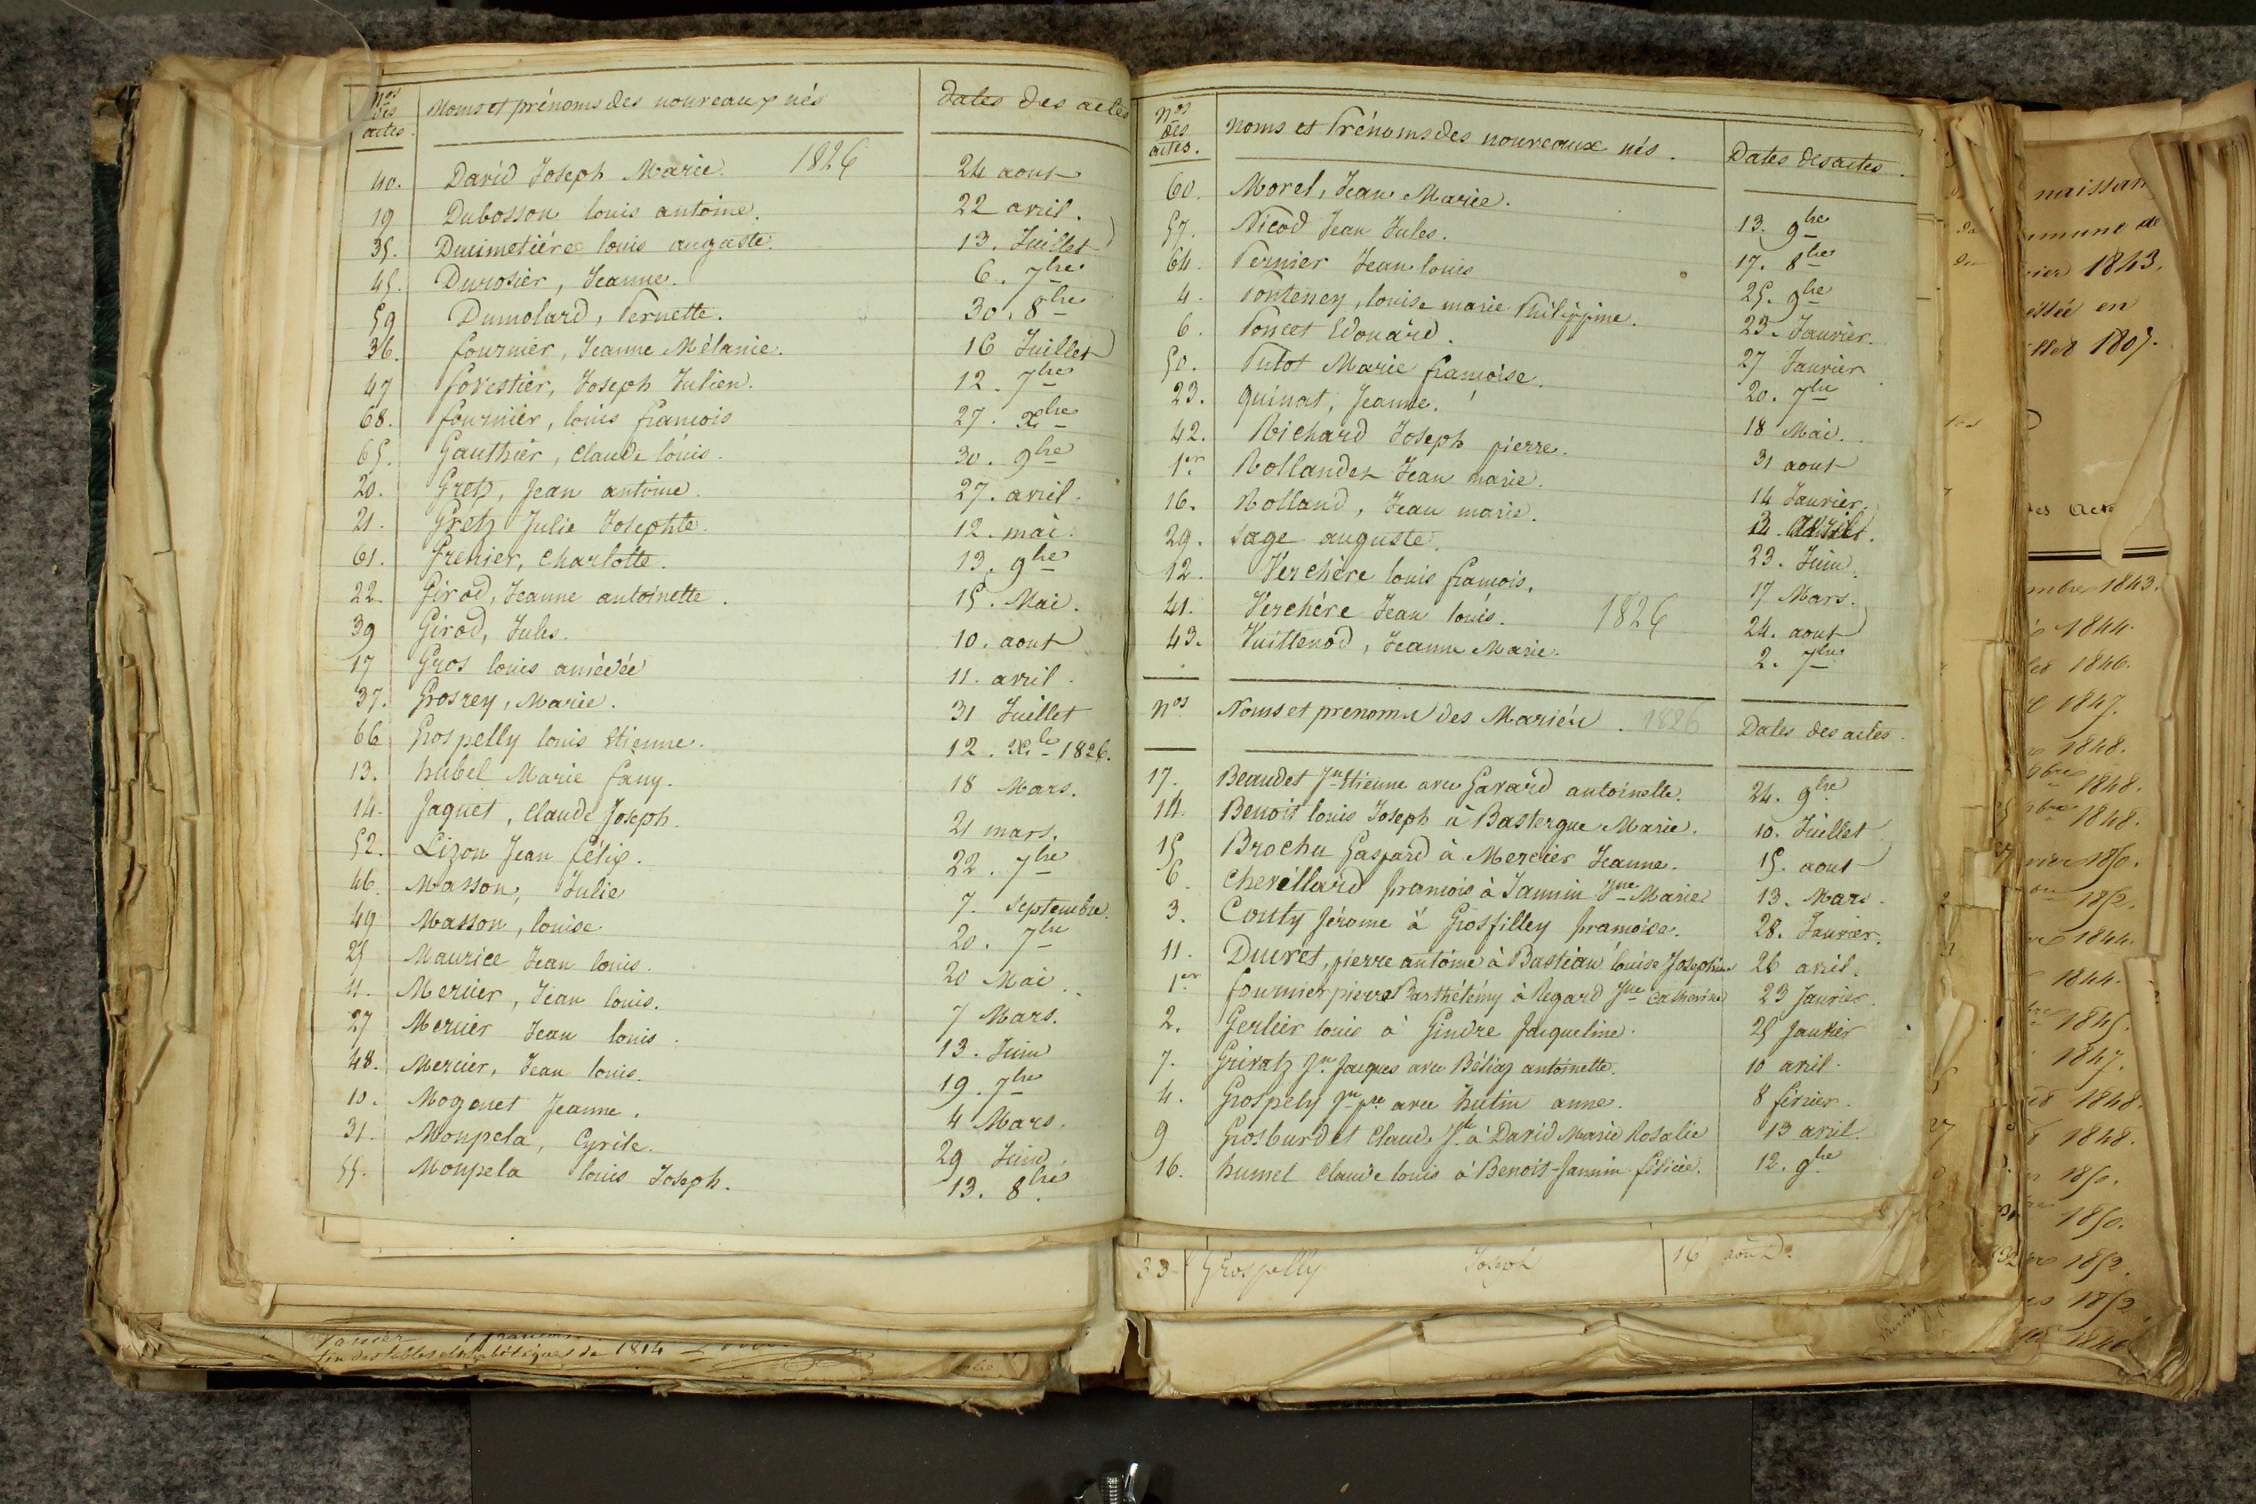 Nos des actes. Noms et prénoms des nouveaux nés Dates des actes
1826
40. David Joseph Marie. 24 aout
19 Dubosson louis antoine. 22 avril.
35. Ducimetière louis auguste. 13. Juillet
45. Durosier, Jeanne. 6. 7bre
59 Dumolard, Pernette. 30. 8bre
36. fournier, Jeanne Mélanie. 16 Juillet
47 forestier, Joseph Julien. 12. 7bre
68. fournier, louis francois 27. xbre
65. Gauthier, Claude louis. 30. 9bre
20. Gretz, Jean antoine. 27. avril.
21. Gretz Julie Josephte. 12. mai.
61. Grenier, Charlotte. 13. 9bre
22. Girod, Jeanne antoinette. 15. Mai.
39 Girod, Jules. 10. aout
17 Gros louis amédée 11. avril.
37. Grosrey, Marie. 31 Juillet
66 Grospelly louis Etienne. 12. xbre 1826.
13. hubel Marie fany. 18 Mars.
14. Jaquet, Claude Joseph. 21 mars.
52. Lizon Jean félix. 22. 7bre
46. Masson, Julie 7. Septembre.
49 Masson, louise 20. 7bre
25 Maurice Jean louis. 20 Mai.
11. Mercier, Jean louis. 7 Mars.
27 Mercier Jean louis. 13. Juin
48. Mercier, Jean louis. 19. 7bre
10. Mogenet Jeanne. 4 Mars.
31. Monpela, Cyrile. 29 Juin.
55. Monpela louis Joseph. 13. 8bre
Nos des actes. Noms et Prénoms des nouveaux nés. Dates des actes.
60. Morel, Jean Marie. 13. 9bre
57. Nicod Jean Jules. 17. 8bre
64. Pernier Jean louis 25. 9bre
4. Ponteney, louise marie Philippine. 23. Janvier.
6. Poncet Edouard. 27 Janvier
50. Putot Marie francoise. 20. 7bre
23. quinat, Jeanne. 18 Mai.
42. Richard Joseph pierre. 31 aout
1er Rollandez Jean marie. 14 Janvier.
16. Rolland, Jean marie. avril.
29. Sage auguste. 23. Juin.
12. Verchère louis francois. 17 Mars.
41. Verchère Jean louis. 1826 24. aout
43. Vuillenod, Jeanne Marie. 2. 7bre
Nos Noms et prenoms des Mariés. 1826 Dates des actes.
17. Beaudet Jn Etienne avec Gavard antoinette. 24. 9bre
14. Benoit louis Joseph à Bastergue Marie. 10. Juillet
15 Brochu Gaspard à Mercier Jeanne. 15. aout
6. Chevillard francois à Jannin Jne Marie 13. Mars.
3. Couty Jérome à Grosfilley francoise. 28. Janvier.
11. Ducret, pierre antoine à Bastian louise Josephine 26 avril.
1er fournier pierre Barthélémy à Regard Jne Catherine 23 Janvier.
2. Gerlier louis à Gindre Jacqueline. 25 Janvier
7. Grivatz Jn Jacques avec Béliaz antoinette. 10 avril.
4. Grospely Jn pre avec hutin anne. 8 février.
9 Grosburdet Claude Jh à David Marie Rosalie 13 avril.
16. humel Claude louis à Benoit-Jannin félicie. 12. 9bre
33 Grospelly Joseph 16 aou
1814
1843.
en
1807.
1843.
1844.
1846.
1847.
1848.
1848.
1848.
1850.
1852.
1844.
1844.
1845.
1847.
1848.
1848.
1850.
1850.
1852.
1852